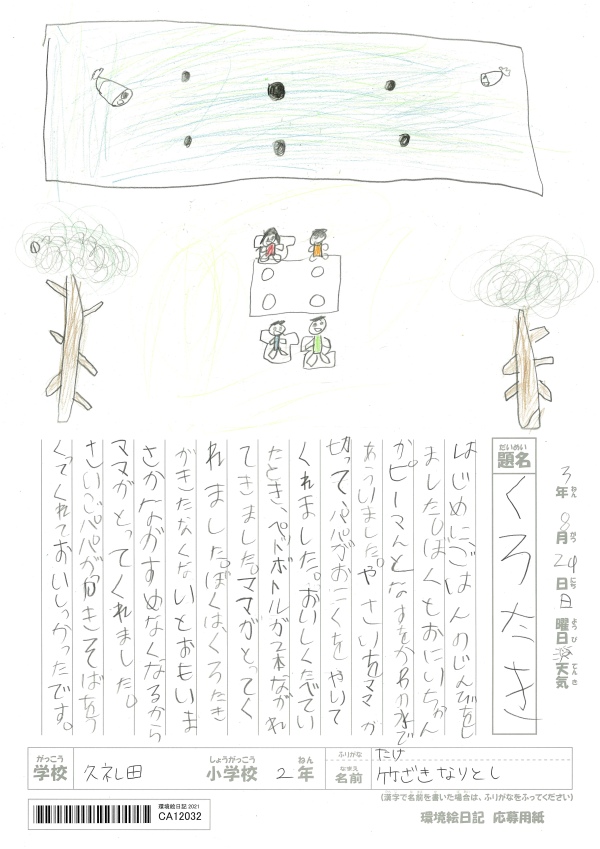 3年8月24日日曜日天気
だいめい
題名
くろたき
はじめに、ごはんのじんびをし
ましたひぼくとおにいちゃん
がピーマんとなすをかわの水で
あういました。やさいをママが
切って、パパがおにくをやいて
くれました。おいしくたべてい
たとき、ペッドボトルが2本ながれ
てきました。ママがとってく
れました。ぼくは、くろたき
がきたなくないとおもいま
さかながすめなくなるから
ママがとってくれました。
さいごパパがやきそばをつ
くってくれておいしかったです。
がっこう
学校 久礼田 小学校 2年
しょうがっこう ねん
ふりがな たけ
なまえ
名前 竹ざきなりとし
(漢字で名前を書いた場合は、ふりがなをふってください)
環境絵日記 2021
CA12032
環境絵日記 応募用紙